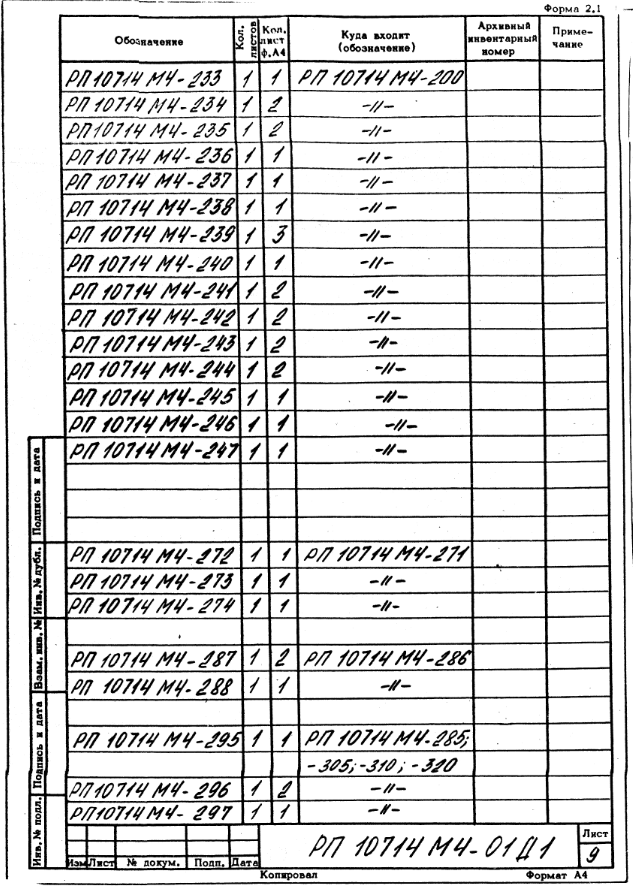 Форма 2.1
Обозначение Кол. листов Кол. лист ф.А4 Куда входит (обозначение) Архивный инвентарный номер Примечание
РП 10714 М4-233 1 1 РП 10714 М4-200
РП 10714 М4-234 1 2 -//-
РП 10714 М4-235 1 2 -//-
РП 10714 М4-236 1 1 -//-
РП 10714 М4-237 1 1 -//-
РП 10714 М4-238 1 1 -//-
РП 10714 М4-239 1 3 -//-
РП 10714 М4-240 1 1 -//-
РП 10714 М4-241 1 2 -//-
РП 10714 М4-242 1 2 -//-
РП 10714 М4-243 1 2 -//-
РП 10714 М4-244 1 2 -//-
РП 10714 М4-245 1 1 -//-
РП 10714 М4-246 1 1 -//-
РП 10714 М4-247 1 1 -//-
РП 10714 М4-272 1 1 РП 10714 М4-271
РП 10714 М4-273 1 1 -//-
РП 10714 М4-274 1 1 -//-
РП 10714 М4-287 1 2 РП 10714 М4-286
РП 10714 М4-288 1 1 -//-
РП 10714 М4-295 1 1 РП 10714 М4-285;
-305; -310; -320
РП 10714 М4-296 1 2 -//-
РП 10714 М4-297 1 1 -//-
Подпись и дата
Инв. № дубл.
Взам. инв. №
Подпись и дата
Инв. № подл.
Изм Лист № докум. Подп. Дата
РП 10714 М4-01Д1
Лист
9
Копировал Формат А4